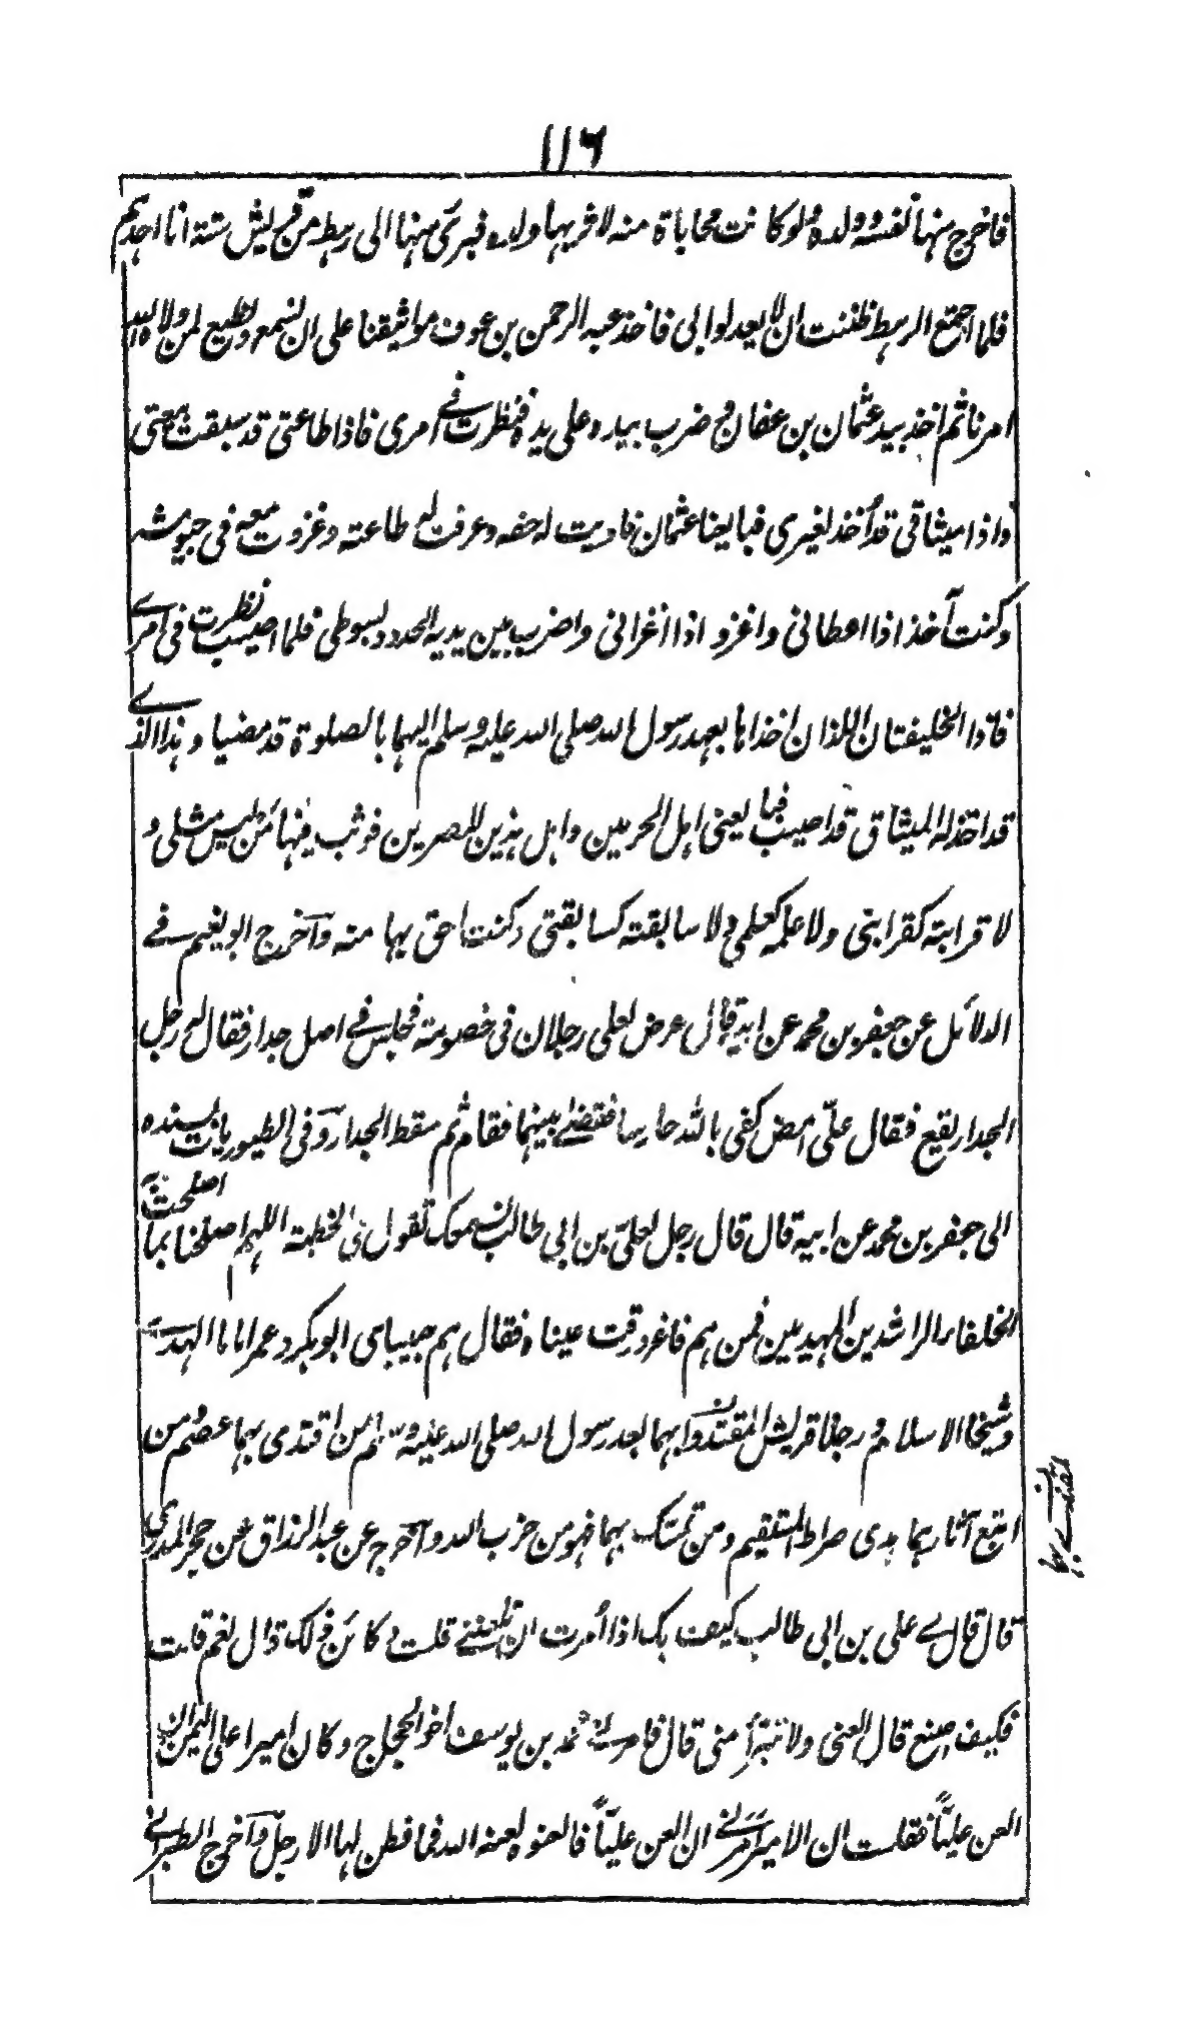 ١١٦
فاخرج منها نفسه وولده ولو كانت محاباة منه لاثر بها ولده فبرئ منها الى رهط من قريش ستة انا احدهم
فلما اجتمع الرهط ظننت ان لا يعدلوا بي فاخذ عبد الرحمن بن عوف مواثيقنا على ان نسمع ونطيع لمن ولاه الله
امرنا ثم اخذ بيد عثمان بن عفان و ضرب بيده على يده فنظرت في امري فاذا طاعتي قد سبقت بيعتي
واذا ميثاقي قد أخذ لغيري فبايعنا عثمان فاديت له حقه وعرفت له طاعته وغزوت معه في جيوشه
وكنت آخذ اذا اعطاني واغزو اذا اغزاني واضرب بين يديه الحدود بسوطي فلما اصيب نظرت في امري
فاذا الخليفتان اللذان اخذاها بعهد رسول الله صلى الله عليه وسلم اليهما بالصلوة قد مضيا وهذا الذي
قد اخذ له الميثاق قد اصيب فبايعني اهل الحرمين واهل هذين المصرين فوثب فيها من ليس مثلي و
لا قرابته كقرابتي ولا علمه كعلمي ولا سابقته كسابقتي وكنت احق بها منه وآخرج ابو نعيم في
الدلائل عن جعفر بن محمد عن ابيه قال عرض لعلي رجلان في خصومة فجلس في اصل جدار فقال له رجل
الجدار يقع فقال عليّ امض كفى بالله حارسا فقضى بينهما فقام ثم سقط الجدار وفي الطيوريات بسنده
الى جعفر بن محمد عن ابيه قال قال رجل لعليّ بن ابي طالب نسمعك تقول في الخطبة اللهم اصلحنا بما اصلحت به
الخلفاء الراشدين المهديين فمن هم فاغرورقت عيناه فقال هم حبيباي ابو بكر وعمر اماما الهدى
وشيخا الاسلام ورجلا قريش المقتدوا بهما بعد رسول الله صلى الله عليه وسلم من اقتدى بهما عصم ومن
اتبع آثارهما هدى صراط المستقيم ومن تمسك بهما فهو من حزب الله وآخرج عن عبد الرزاق عن حجر المدري
المقتدى بهما
قال قال لي علي بن ابي طالب كيف بك اذا أمرت ان تلعنني قلت وكائن ذلك قال نعم قلت
فكيف اصنع قال العني ولا تبرّأ مني قال فامرني محمد بن يوسف اخو الحجاج وكان اميرا على اليمن ان
العن عليّاً فقلت ان الامير امرني ان العن عليّاً فالعنوه لعنه الله فما فطن لها الا رجل وآخرج الطبراني